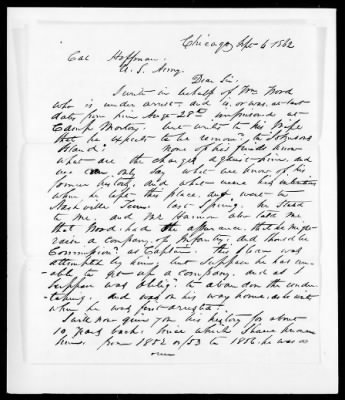 Chicago, Sept 6 1862
Col Hoffman.
U.S. Army.
Dear Sir,
I write in behalf of Wm Wood
who is under arrest and is, or was, at last
dates from him Augt 28th imprisoned at
Camp Morton. He writes to his Wife
that he expects to be removed to Johnsons
Island. None of his friends know
what are the charges against him, and
we can only say what we know of his
former history, and what were his
when he left this place, and went to
Nashville Tenn last Spring. He Said
to me, and Mr Harmon also told me
that Wood had the assurance that he might
raise a company of Infantry and Should be
Commission'd as Captain. This I learn was
attempted by him, but Suppose he was un-
able to get up a company. and as I
Suppose was oblig'd to abandon the under-
taking. and was on his way home, as he writes
when he was first arrested.
I will now give you his history for about
10 years back. Since which I have known
him. from 1852 or/53 to 1856. he was a